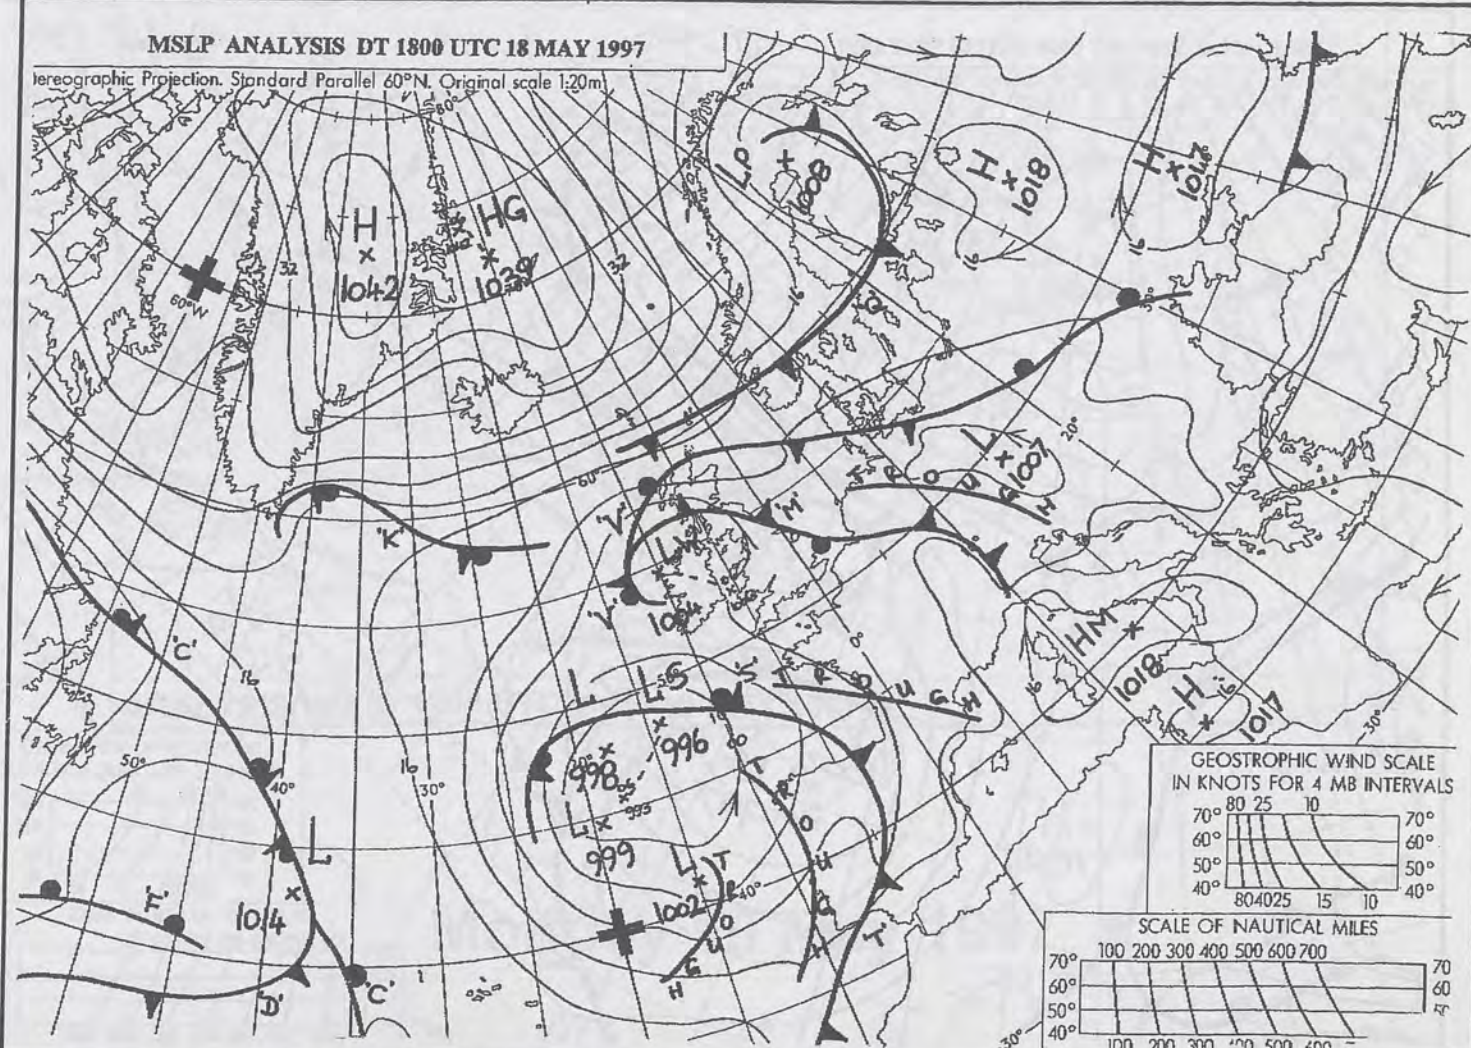 MSLP ANALYSIS DT 1800 UTC 18 MAY 1997
tereographic Projection. Standard Parallel 60°N. Original scale 1:20m
80°
LP
1008
H
1018
H
1017
H
1042
HG
1039
32
32
60°W
16
16
16
'Q'
30°
60°
20°
L
1007
TROUGH
'K'
'V'
'M'
L
1004
'V'
'C'
16
HM
1018
H
1017
16
16
L
LS
'S'
TROUGH
998
996
995
L
999
L
1002
TROUGH
TROUGH
40°
'T'
50°
40°
16
30°
L
1014
'F'
'D'
'C'
30°
30°
GEOSTROPHIC WIND SCALE
IN KNOTS FOR 4 MB INTERVALS
80 25 10
70° 70°
60° 60°
50° 50°
40° 40°
80 40 25 15 10
SCALE OF NAUTICAL MILES
100 200 300 400 500 600 700
70° 70
60° 60
50°
40°
100 200 300 400 500 600